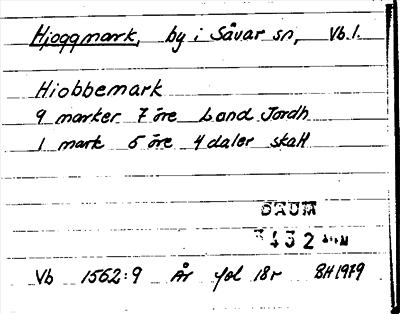 Hjoggmark, by i Sävar sn, Vb.l.
Hiobbemark
9 marker 7 öre Land Jordh
1 mark 5 öre 4 daler skatt
DAUM
3432
Vb 1562:9 År fol 18r BH 1979